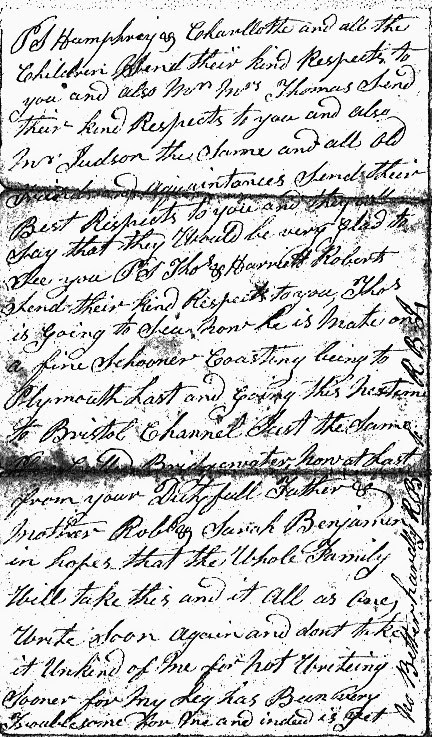 PS Humphrey & Charllotte and all the
Children Send their kind Respects to
you and also Mr Mrs Thomas Send
their kind Respects to you and also
Mr Judson the Same and all old
friends and Acquaintances Send their
Best Respects to you and they all
Say that they Would be very Glad to
See you PS Thos & Harriett Roberts
Send their Kind Respects to you Thos
is Going to Sea now he is Mate of
a fine Schooner Coasting being to
Plymouth Last and Going this
to Bristol Channel Just the Same
Bridgewater now at Last
from your Dutyfull Father &
Mother Robt & Sarah Benjamin
in hopes that the Whole Family
Will take this and it All as One
Write Soon Again and dont take
it Unkind of Me for Not Writeing
Sooner for My Leg has Been very
Troublesome for Me and indeed is Yet
No Better hardly RB
R B